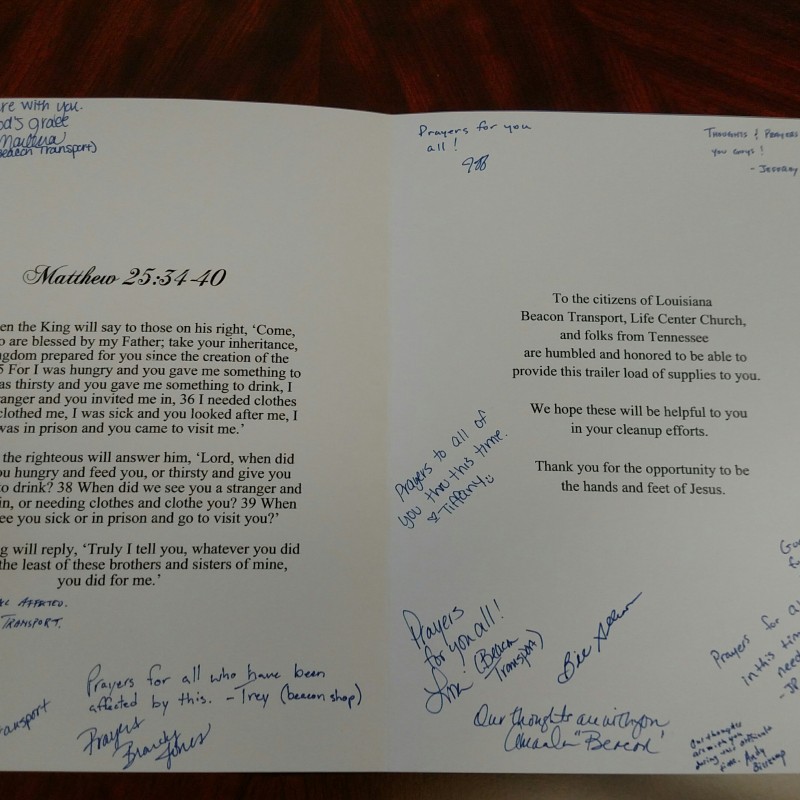 re with you.
od's grace
Beacon Transport)
Matthew 25:34-40
en the King will say to those on his right, ‘Come,
o are blessed by my Father; take your inheritance,
ngdom prepared for you since the creation of the
5 For I was hungry and you gave me something to
as thirsty and you gave me something to drink, I
ranger and you invited me in, 36 I needed clothes
clothed me, I was sick and you looked after me, I
was in prison and you came to visit me.’
the righteous will answer him, ‘Lord, when did
ou hungry and feed you, or thirsty and give you
to drink? 38 When did we see you a stranger and
in, or needing clothes and clothe you? 39 When
ee you sick or in prison and go to visit you?’
g will reply, ‘Truly I tell you, whatever you did
the least of these brothers and sisters of mine,
you did for me.’
Affected.
Transport.
ransport
Prayers for all who have been
affected by this. - Trey (beacon shop)
Prayers
Brandy
Jones
Prayers for you
all!
Thoughts & Prayers
you guys!
- Jeffrey
To the citizens of Louisiana
Beacon Transport, Life Center Church,
and folks from Tennessee
are humbled and honored to be able to
provide this trailer load of supplies to you.
We hope these will be helpful to you
in your cleanup efforts.
Thank you for the opportunity to be
the hands and feet of Jesus.
Prayers to all of
you thru this time.
- Tiffany
Prayers
for you all!
(Beacon
Transport)
Bill
Our thoughts are with you
"Beacon"
Prayers for a
in this tim
need
- JP
Our thoughts
are with you
during this difficult
time. Andy